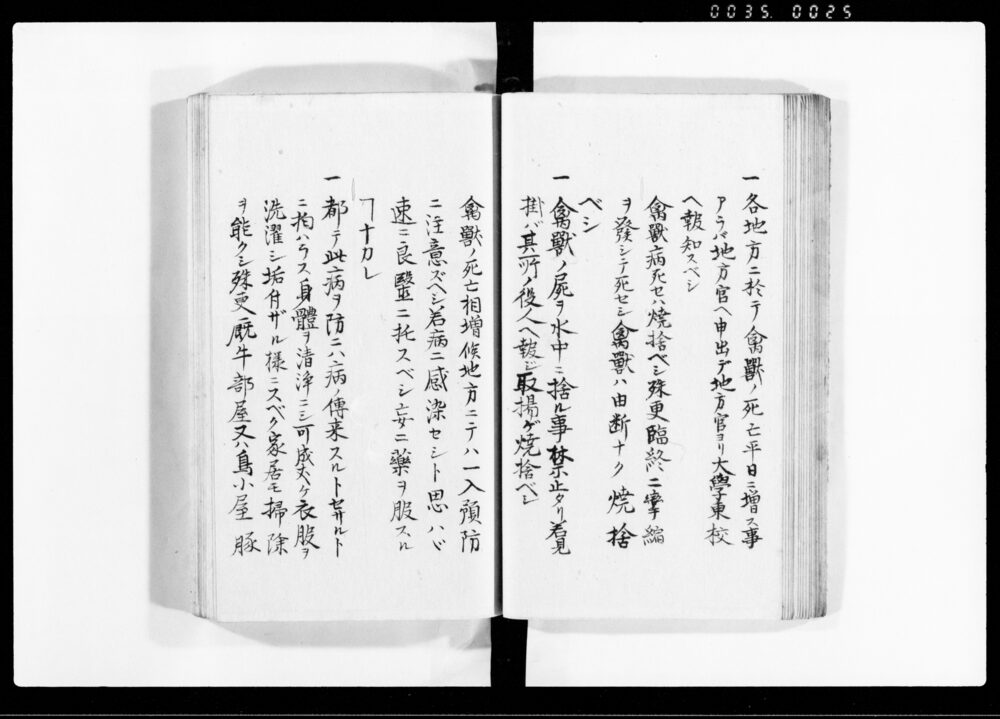 0035 0025
一各地方ニ於テ禽獸ノ死亡平日ニ増ス事
アラバ地方官ヘ申出デ地方官ヨリ大學東校
ヘ報知スベシ
禽獸病死セハ焼捨ベシ殊更臨終ニ攣縮
ヲ發シテ死セシ禽獸ハ由断ナク焼捨
ベシ
一禽獸ノ屍ヲ水中ニ捨ル事禁止タリ若見
掛バ其所ノ役人ヘ報ジ取揚ゲ焼捨ベシ
禽獸ノ死亡相増候地方ニテハ一入預防
ニ注意ズヘシ若病ニ感染セシト思ハバ
速ニ良醫ニ托スベシ妄ニ藥ヲ服スル
ヿナカレ
一都テ此病ヲ防ニハ病ノ傳来スルトセサルト
ニ拘ハラス身體ヲ清浄ニシ可成丈ケ衣服ヲ
洗濯シ垢付ザル様ニスベク家居モ掃除
ヲ能クシ殊更厩牛部屋又ハ鳥小屋豚